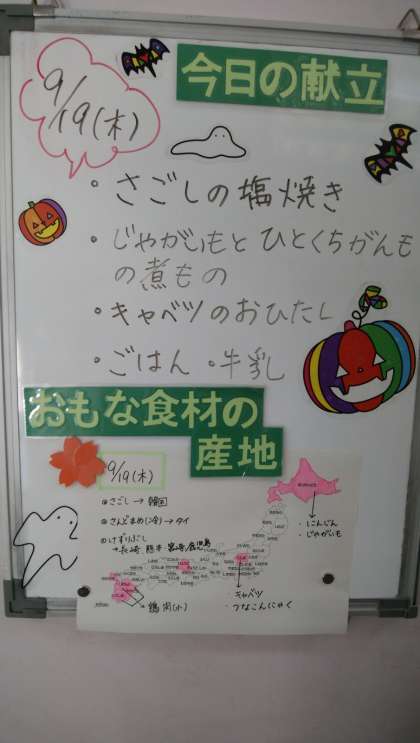 今日の献立
9/19(木)
・さごしの塩焼き
・じゃがいもとひとくちがんも
の煮もの
・キャベツのおひたし
・ごはん ・牛乳
おもな食材の
産地
9/19(木)
さごし → 韓国
さんどまめ(冷) → タイ
けずりぶし
→ 長崎 熊本 宮崎 鹿児島
・にんじん
・じゃがいも
・キャベツ
・つなこんにゃく
鶏肉(小)